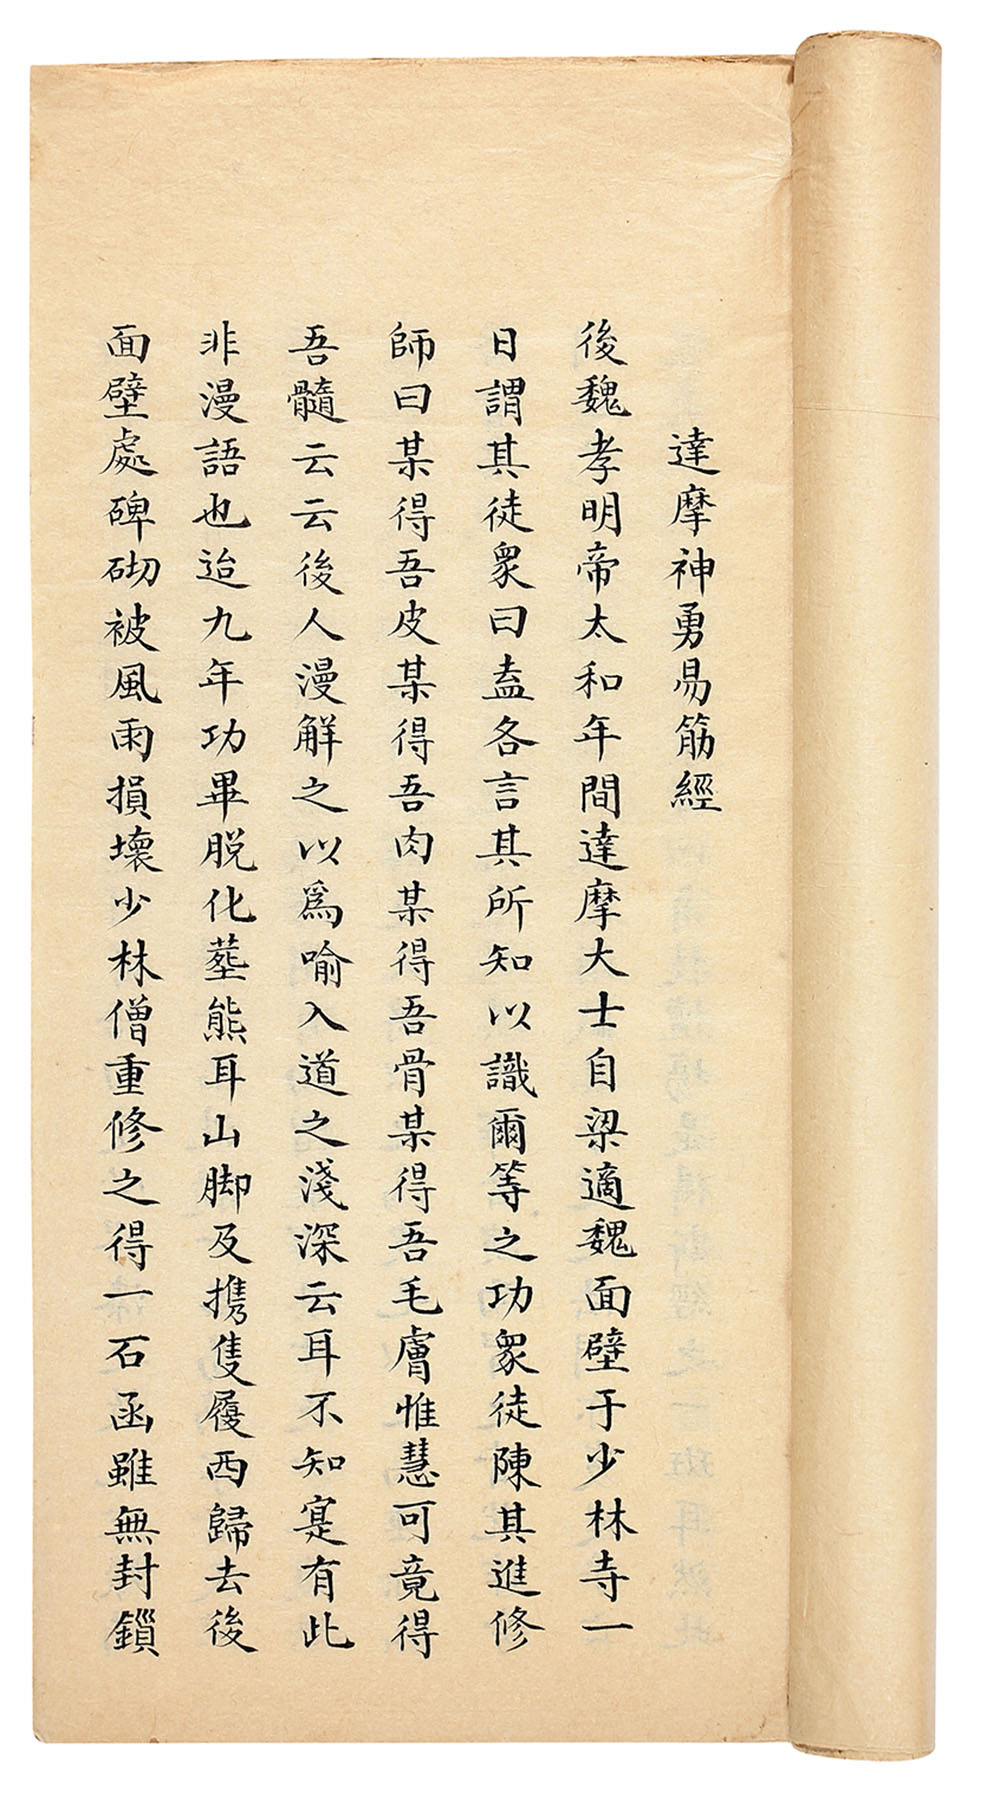 達摩神勇易筋經
後魏孝明帝太和年間達摩大士自梁適魏面壁于少林寺一
日謂其徒衆曰盍各言其所知以識爾等之功衆徒陳其進修
師曰某得吾皮某得吾肉某得吾骨某得吾毛膚惟慧可竟得
吾髓云云後人漫解之以爲喻入道之淺深云耳不知寔有此
非漫語也迨九年功畢脱化塟熊耳山脚及携隻履西歸去後
面壁處碑砌被風雨損壞少林僧重修之得一石函雖無封鎻